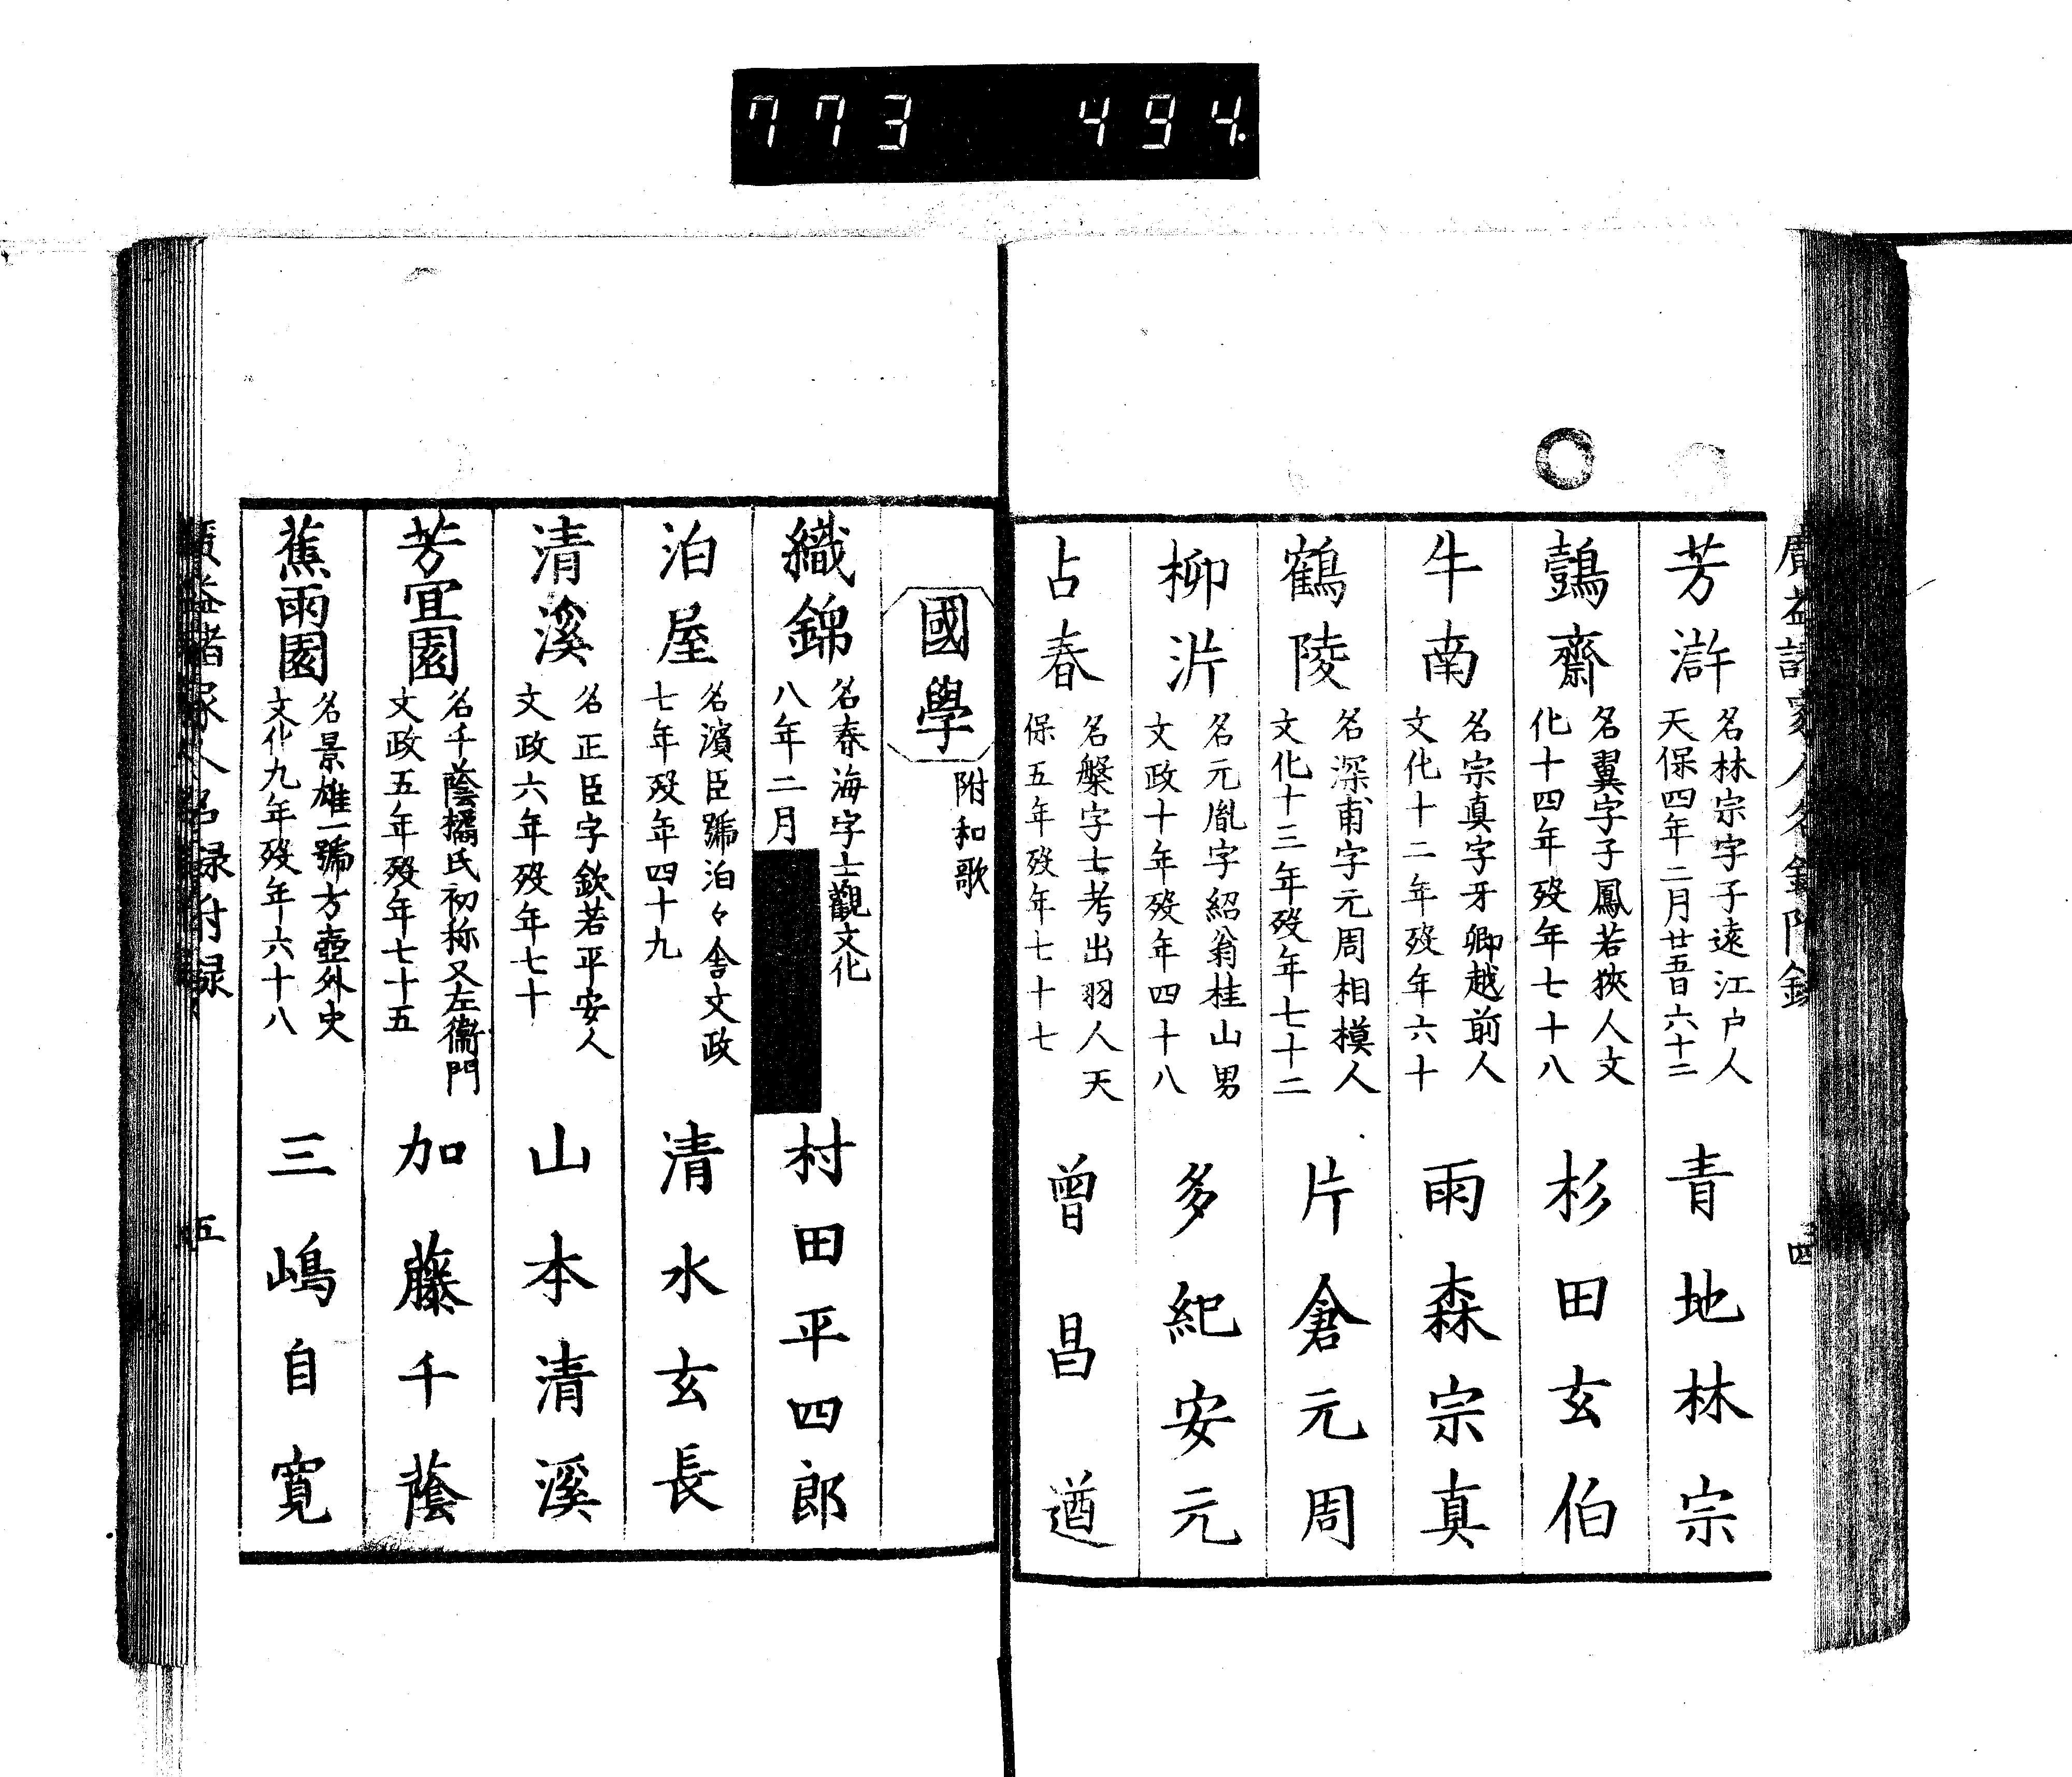 773 494
廣益諸家人名録附録
四
芳滸
名林宗字子遠江户人
天保四年二月廿五日六十二
青地林宗
鷧齋
名翼字子鳳若狹人文
化十四年歿年七十八
杉田玄伯
牛南
名宗真字牙卿越前人
文化十二年歿年六十
雨森宗真
鶴陵
名深甫字元周相模人
文化十三年歿年七十二
片倉元周
柳沜
名元胤字紹翁桂山男
文政十年歿年四十八
多紀安元
占春
名槃字士考出羽人天
保五年歿年七十七
曽昌遒
國學
附和歌
織錦
名春海字士觀文化
八年二月
村田平四郎
泊屋
名濱臣號泊々舎文政
七年歿年四十九
清水玄長
清溪
名正臣字欽若平安人
文政六年歿年七十
山本清溪
芳宜園
名千蔭橘氏初称又左衞門
文政五年歿年七十五
加藤千蔭
蕉雨園
名景雄一號方壺外史
文化九年歿年六十八
三嶋自寛
廣益諸家人名録附録
五